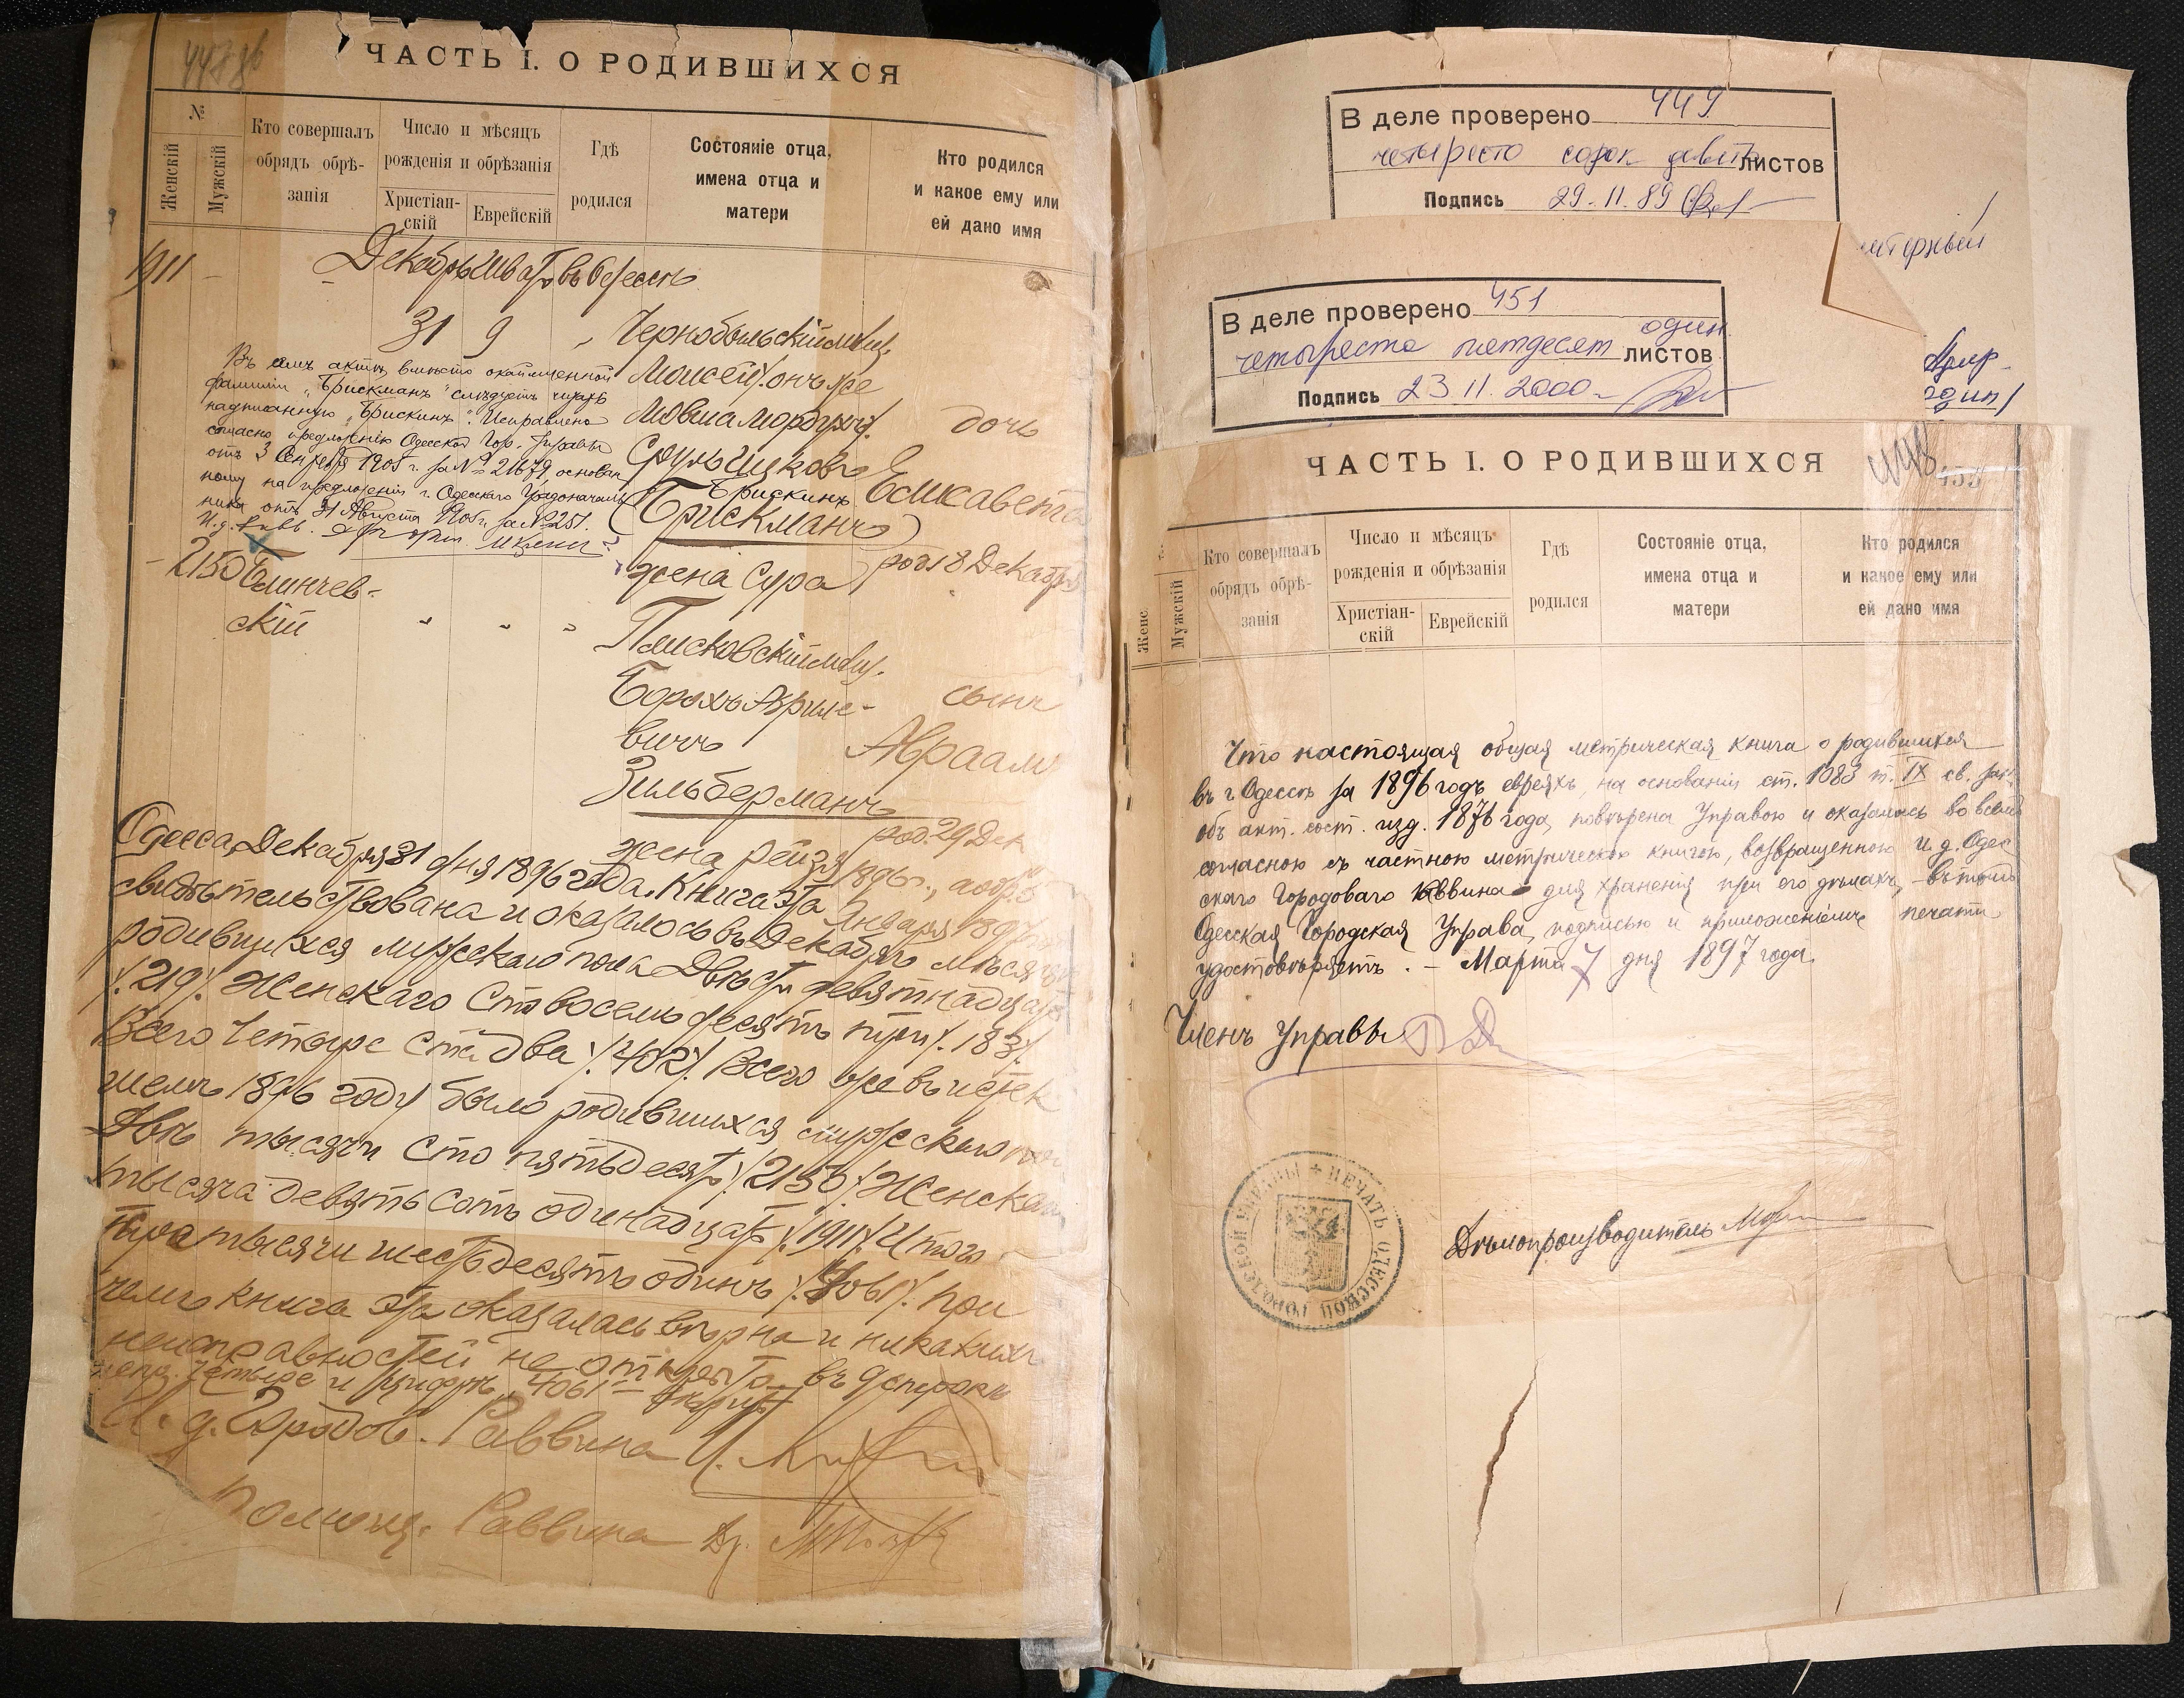 ЧАСТЬ I. О РОДИВШИХСЯ
№
Женскій
Мужскій
Кто совершалъ
обрядъ обрѣ-
занія
Число и мѣсяцъ
рожденія и обрѣзанія
Христіан-
скій
Еврейскій
Гдѣ
родился
Состояніе отца,
имена отца и
матери
Кто родился
и какое ему или
ей дано имя
1911 –
Декабрь Шватъ въ Одессѣ
31 9
Чернобыльскій мѣщ.
Моисей /: онъ же
Мовша Мордухъ :/
Срульициковъ
Брискинъ
(Брискманъ)
жена Сура
дочь
Елисавета
род. 18 Декабря
Въ семъ актѣ вмѣсто окаймленной
фамиліи „Брискманъ" слѣдуетъ читать
надписанную „Брискинъ". Исправлено
согласно предложенію Одесской Гор. Управы
отъ 3 Сентября 1905 г. за № 21679, основан
ному на предложеніи г. Одесскаго Градоначаль
ника отъ 31 Августа 1905 г. за № 251.
– 2150 Блинчев-
скій
Плисковскій мѣщ.
Борохъ Аврумо-
вичъ
Зильберманъ
жена Рейзя
сынъ
Авраам
род. 29 Дек
1896 г., а обр. 5
Января 1897
Одесса, Декабря 31 дня 1896 года. Книга эта
свидѣтельствована и оказалось въ Декабрѣ мѣсяцѣ
родившихся мужескаго пола Двѣсти девятнадцать
/: 219 :/ Женскаго Сто восемьдесятъ три /: 183 :/
Всего Четыре ста два /: 402 :/ Всего же въ истек
шемъ 1896 году было родившихся мужескаго пола
Двѣ тысячи сто пятьдесятъ /: 2150 :/ Женскаго
тысяча девятьсотъ одинадцать /: 1911 :/ Итого
тысячи шестьдесятъ одинъ /: 4061 :/ при
чемъ книга эта оказалась вѣрна и никакихъ
неисправностей не открыто
И. д. Городов. Раввина
Помощ. Раввина
В деле проверено 449
четыреста сорок девять листов
Подпись 29.11.89
В деле проверено 451
один
четыреста пятдесят листов
Подпись 23 11. 2000
ЧАСТЬ I. О РОДИВШИХСЯ
Женс
Мужскій
Кто совершалъ
обрядъ обрѣ-
занія
Число и мѣсяцъ
рожденія и обрѣзанія
Христіан-
скій
Еврейскій
Гдѣ
родился
Состояніе отца,
имена отца и
матери
Кто родился
и какое ему или
ей дано имя
Что настоящая общая метрическая книга о родившихся
въ г. Одессѣ за 1896 годъ евреяхъ, на основаніи ст. 1083 т. IX св. зак.
объ акт. сост. изд. 1876 года, повѣрена Управою и оказалась во всемъ
согласною съ частною метрическою книгою, возвращенною и. д. Одес
скаго Городоваго Раввина для храненія при его дѣлахъ, – въ томъ
Одесская Городская Управа, подписью и приложеніемъ печати
удостовѣряетъ. – Марта 7 дня 1897 года.
Членъ Управы
ПЕЧАТЬ ОДЕССКОЙ ГОРОДСКОЙ УПРАВЫ
Дѣлопроизводитель